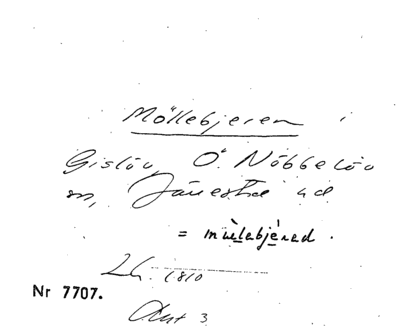 Möllebjeren i
Gislöv, Ö. Nöbbelöv
sn, Järrestad hd
= mùlebjèred.
Lh. 1810
Nr 7707.
Akt 3